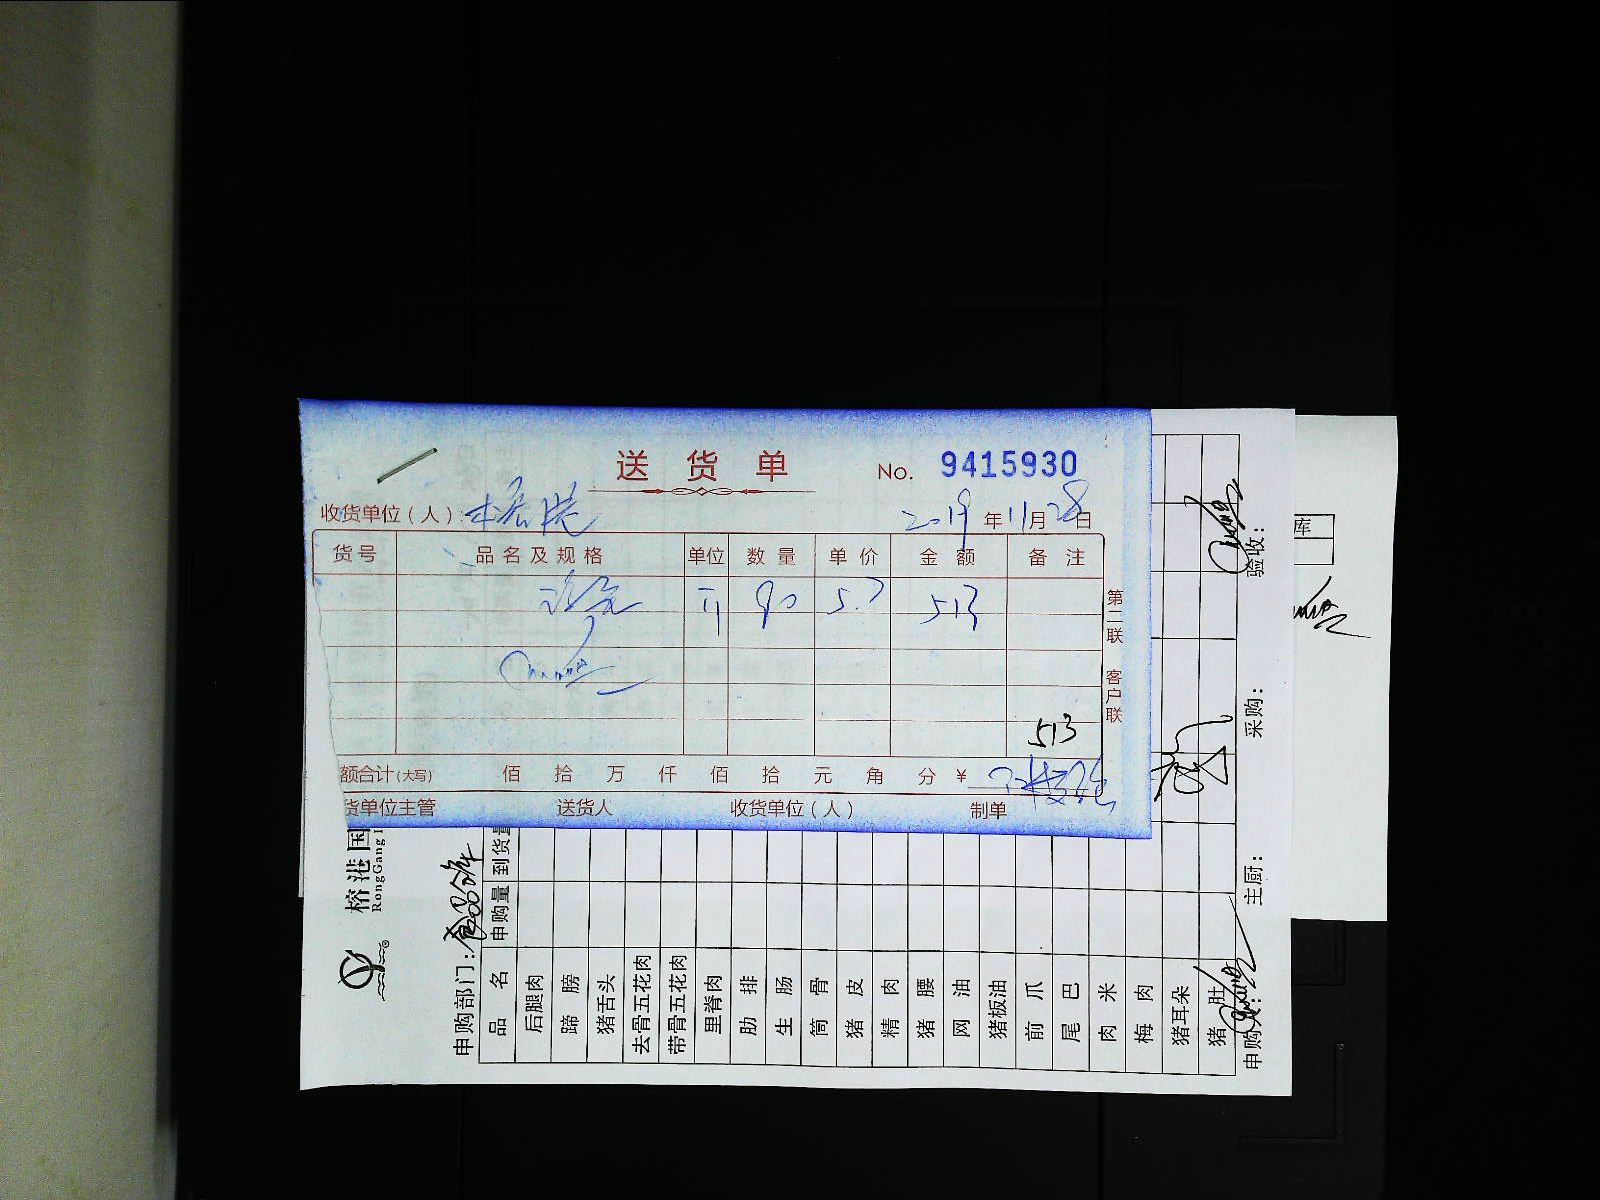 送货单
No. 9415930
收货单位(人):
2019年11月28日
货号 品名及规格 单位 数量 单价 金额 备注
斤 90 5.7 513
513
第二联 客户联
额合计(大写) 佰 拾 万 仟 佰 拾 元 角 分 ¥
货单位主管 送货人 收货单位(人) 制单
榕港国
RongGang I
申购部门:食品仓库
品名 申购量 到货量
后腿肉
蹄膀
猪舌头
去骨五花肉
带骨五花肉
里脊肉
肋排
生肠
筒骨
猪皮
精肉
猪腰
网油
猪板油
前爪
尾巴
肉米
梅肉
猪耳朵
猪肚
申购人: 主厨: 采购: 验收:
库